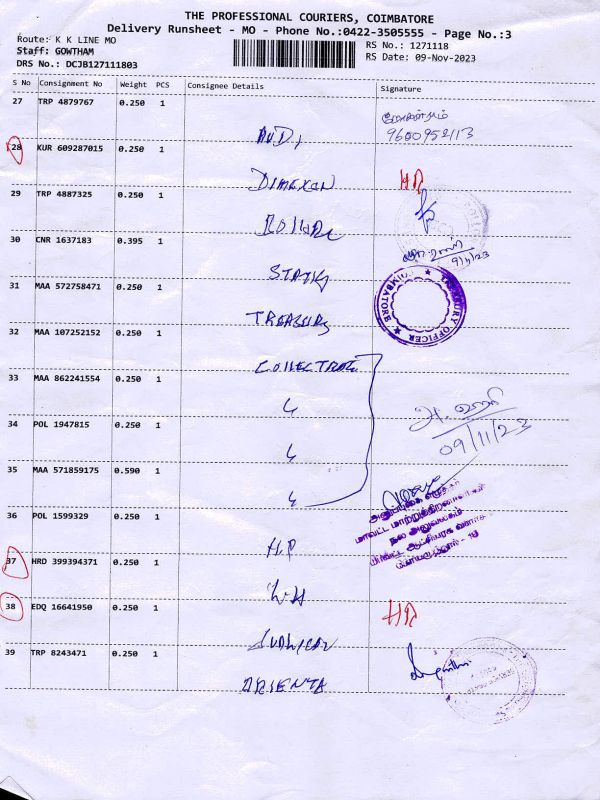 THE PROFESSIONAL COURIERS, COIMBATORE
Delivery Runsheet - MO - Phone No.:0422-3505555 - Page No.:3
Route: K K LINE MO
RS No.: 1271118
Staff: GOWTHAM
RS Date: 09-Nov-2023
DRS No.: DCJB127111803
S No Consignment No Weight PCS Consignee Details Signature
27 TRP 4879767 0.250 1
9600952113
AUDI
28 KUR 609287015 0.250 1
DIMEXON
29 TRP 4887325 0.250 1
30 CNR 1637183 0.395 1
9/11/23
31 MAA 572758471 0.250 1
TREASURY OFFICER
COIMBATORE
TREASURY
32 MAA 107252152 0.250 1
33 MAA 862241554 0.250 1
34 POL 1947815 0.250 1
09/11/23
35 MAA 571859175 0.590 1
36 POL 1599329 0.250 1
H.P
37 HRD 399394371 0.250 1
38 EDQ 16641950 0.250 1
39 TRP 8243471 0.250 1
ORIENTA